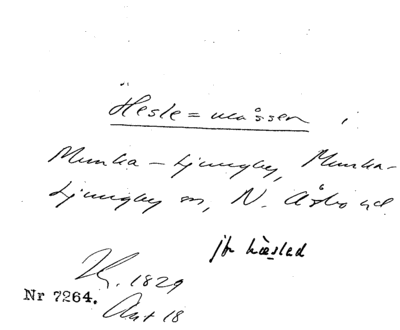 Hesle=mossen i
Munka-Ljungby, Munka-
Ljungby sn, N. Åsbo hd.
jfr Hæsled
1829
Nr 7264. Akt 18